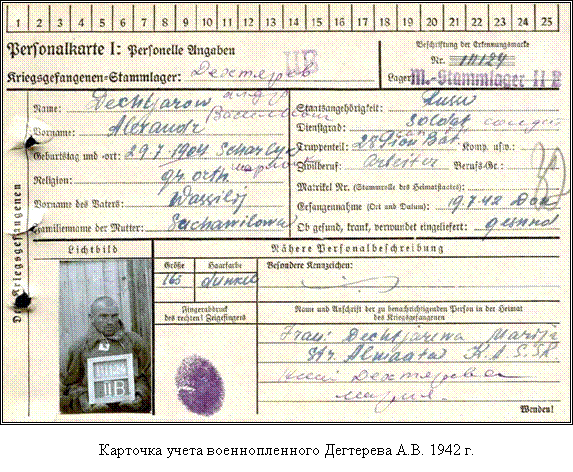 1 2 3 4 5 6 7 8 9 10 11 12 13 14 15 16 17 18 19 20 21 22 23 24 25
Personalkarte I: Personelle Angaben
Kriegsgefangenen-Stammlager: Дехтерев
II B
Beschriftung der Erkennungsmarke
Nr.
Lager: M.-Stammlager II B
Des Kriegsgefangenen
Name: Dechtjarow
Vorname: Alexandr
Geburtstag und -ort: 29.7.1904
Religion: gr. orth
Vorname des Vaters: Wassilij
Familienname der Mutter:
Staatsangehörigkeit: Russe
Dienstgrad: Soldat
Truppenteil: Komp. usw.:
Zivilberuf: Arbeiter Berufs-Gr.:
Matrikel Nr. (Stammrolle des Heimatstaates):
Gefangennahme (Ort und Datum): 19.7.42 Don
Ob gesund, krank, verwundet eingeliefert: gesund
Lichtbild
Nähere Personalbeschreibung
Größe
Haarfarbe
Besondere Kennzeichen:
165
dunkel
Fingerabdruck
des rechten! Zeigefingers
Name und Anschrift der zu benachrichtigenden Person in der Heimat
des Kriegsgefangenen
Frau Dechtjarewa Marija
Str. Almaata K.A.S.S.R.
Дехтерева
Мария
II B
Wenden!
Карточка учета военнопленного Дегтерева А.В. 1942 г.